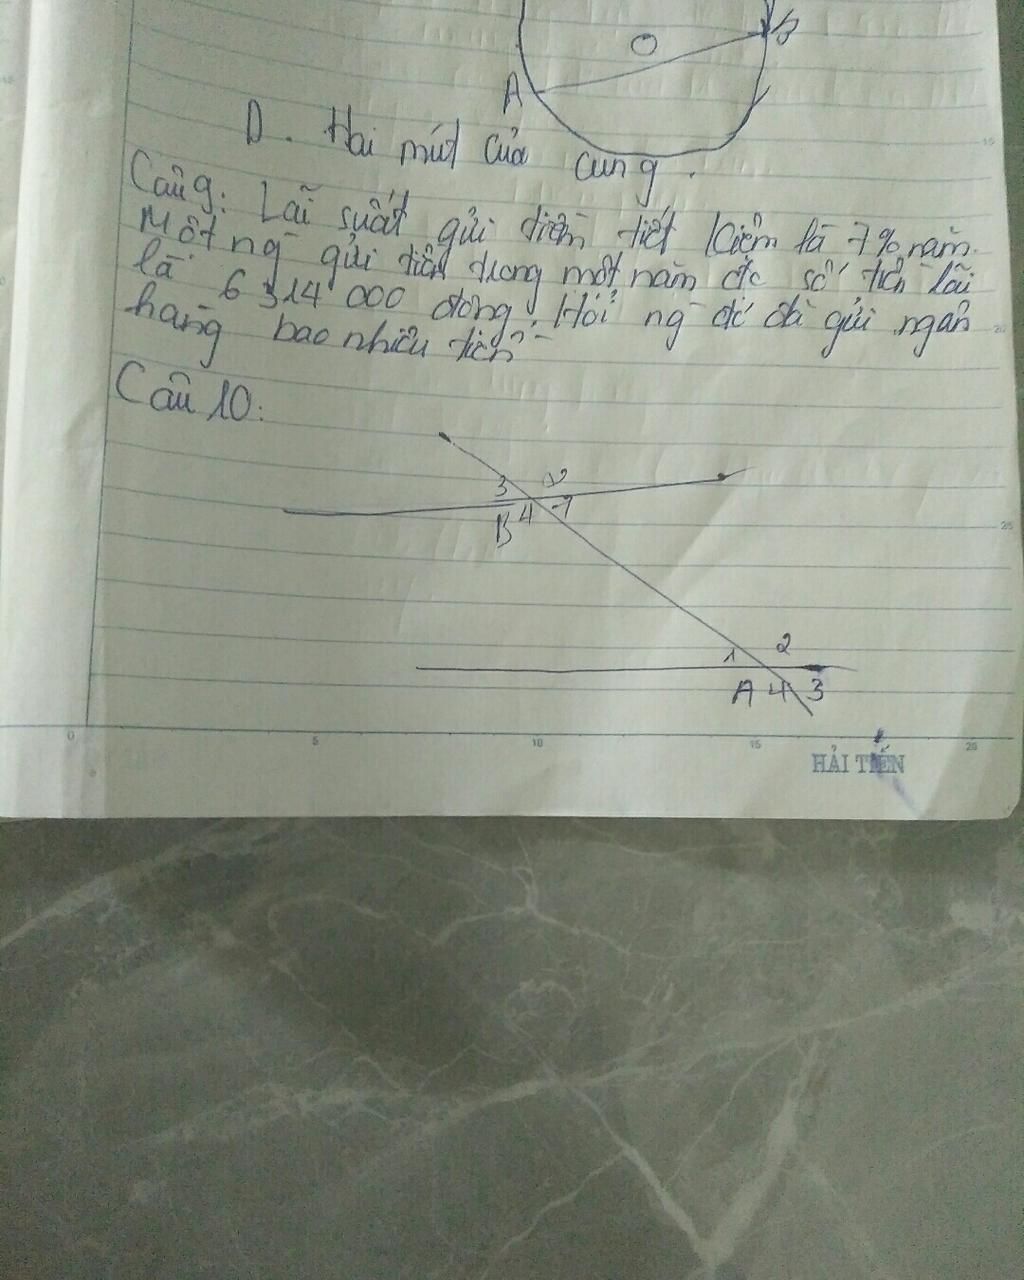 B
A
D. Hai mút của cung.
Câu 9: Lãi suất gửi tiền tiết kiệm là 7% năm.
Một ng gửi tiền trong một năm đc số tiền lãi
là 6 314 000 đồng. Hỏi ng đó đã gửi ngân
hàng bao nhiêu tiền?
Câu 10:
3 2
B 4 1
1 2
A 4 3
0 5 10 15 20
15
20
25
HẢI TIẾN